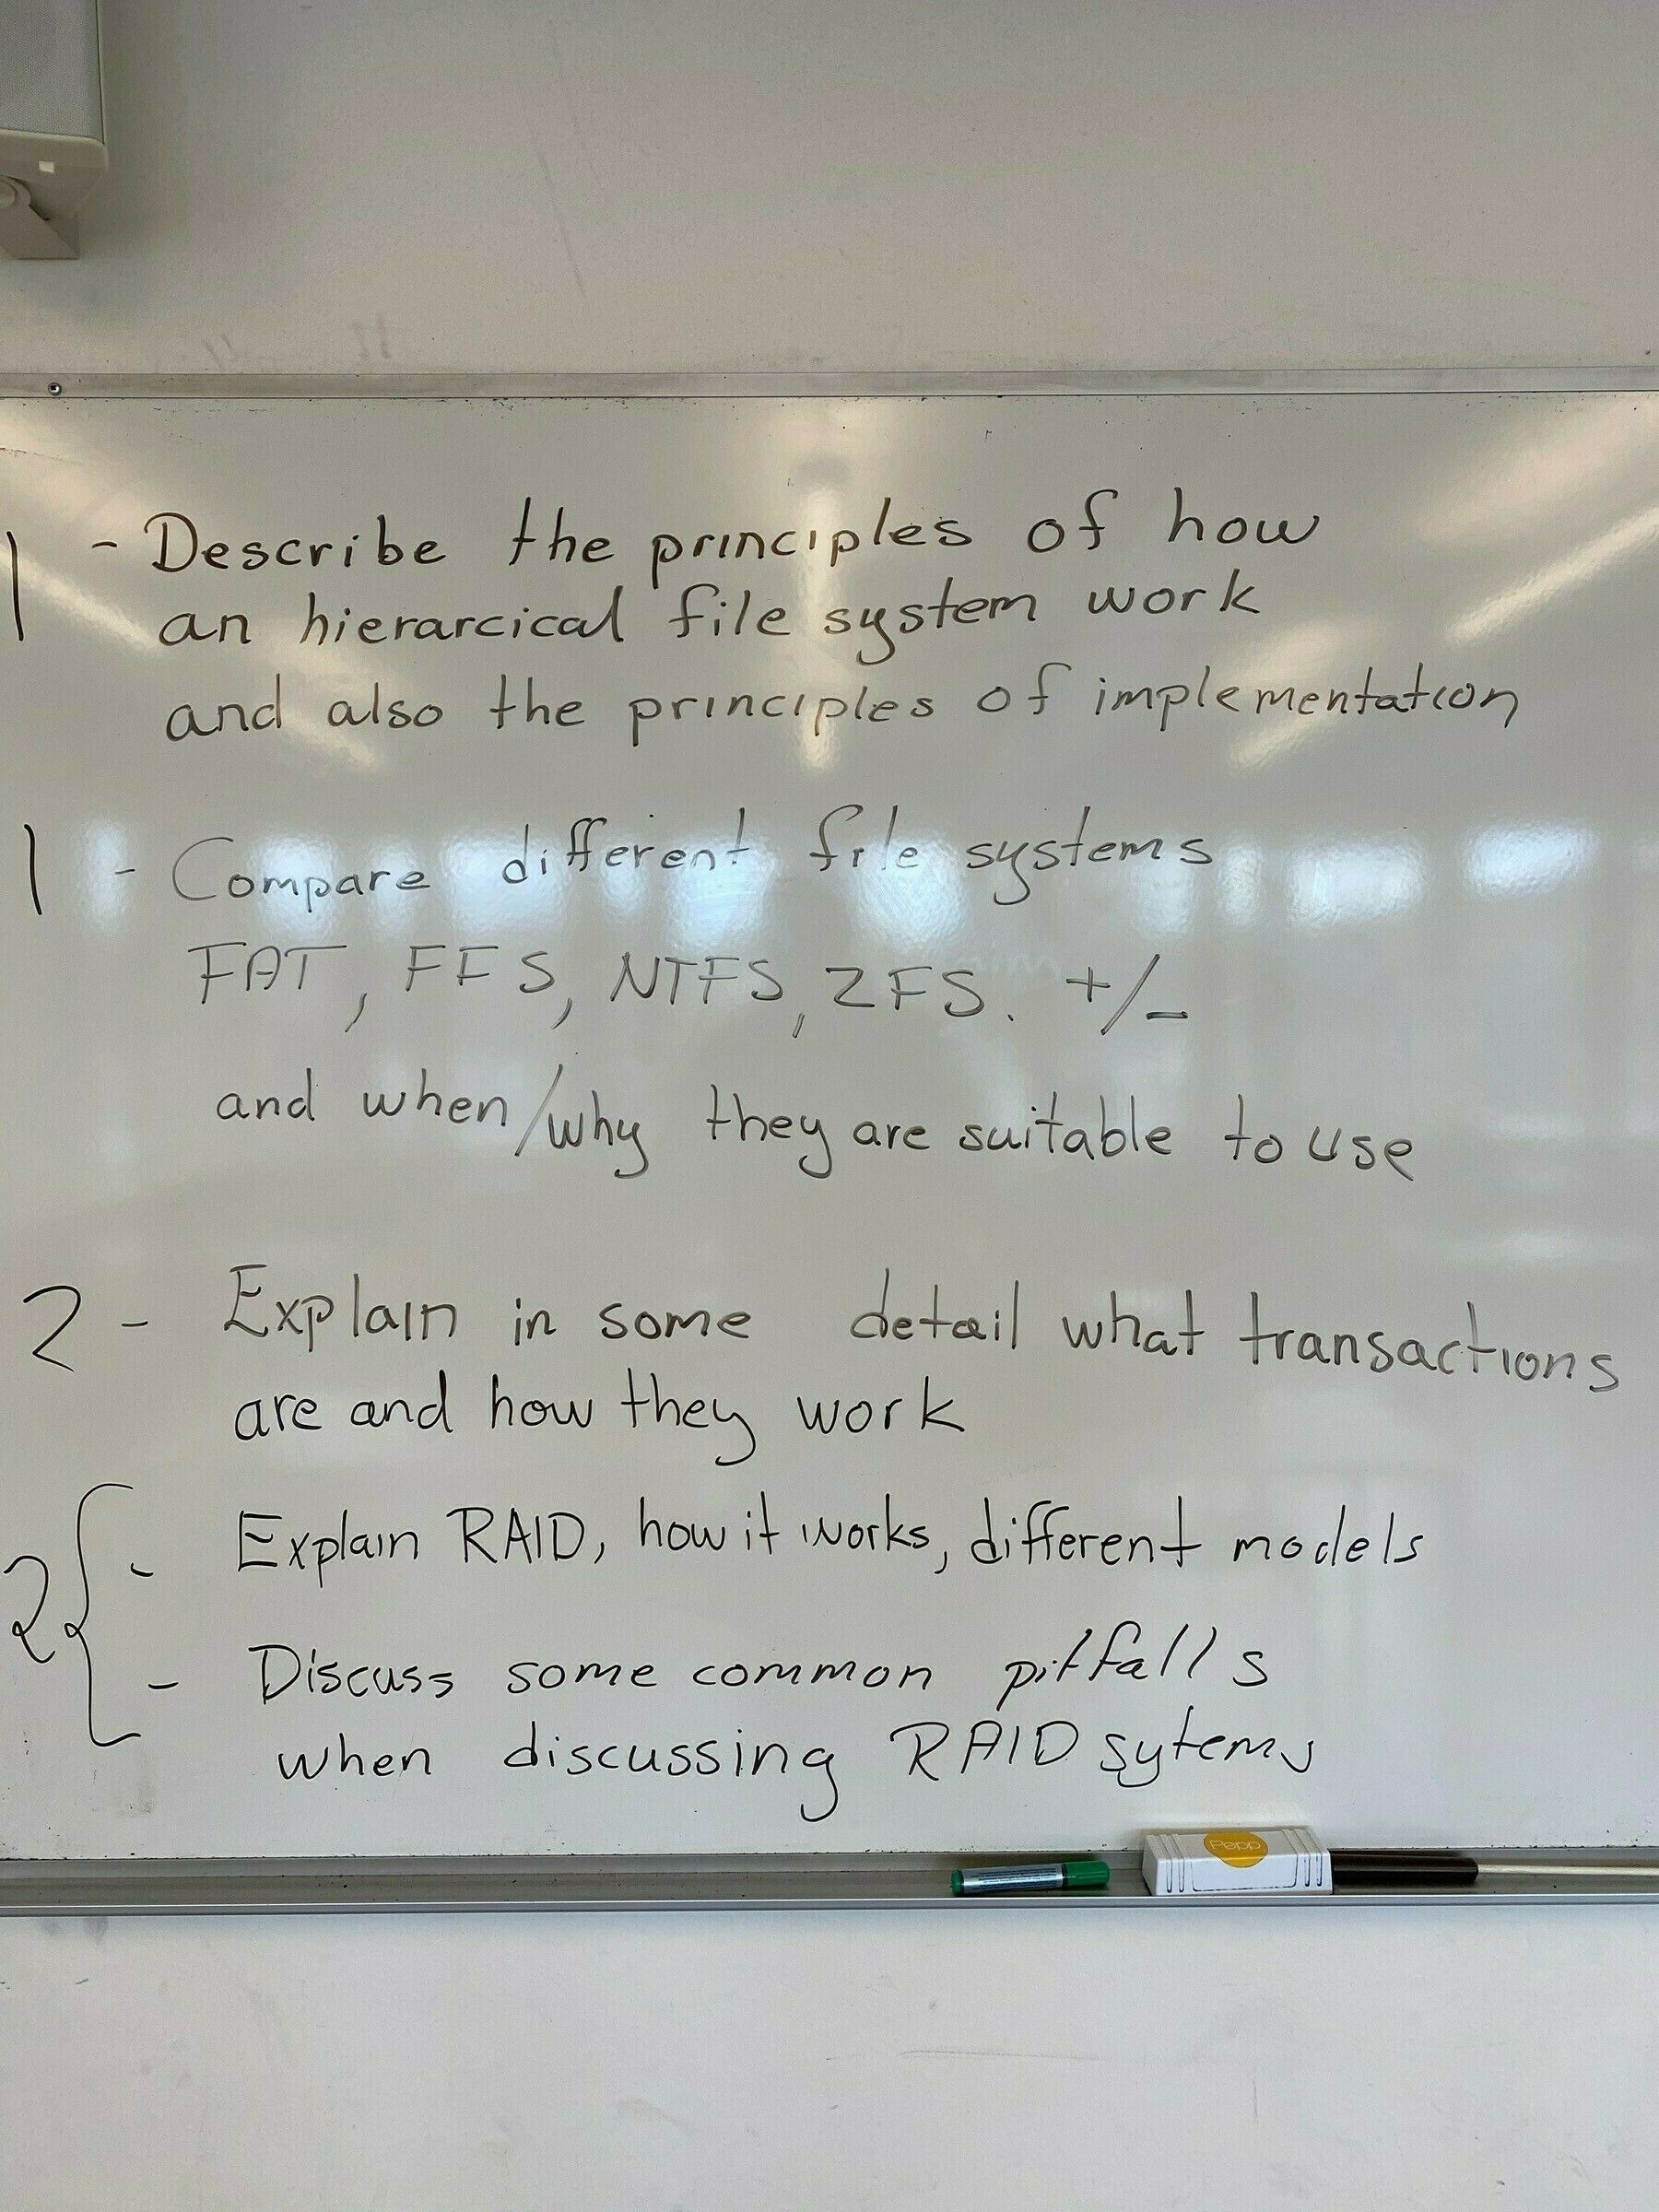 1 - Describe the principles of how
an hierarcical file system work
and also the principles of implementation
1 - Compare different file systems
FAT, FFS, NTFS, ZFS. +/-
and when/why they are suitable to use
2 - Explain in some detail what transactions
are and how they work
2 { - Explain RAID, how it works, different models
- Discuss some common pitfalls
when discussing RAID sytems
Pepp